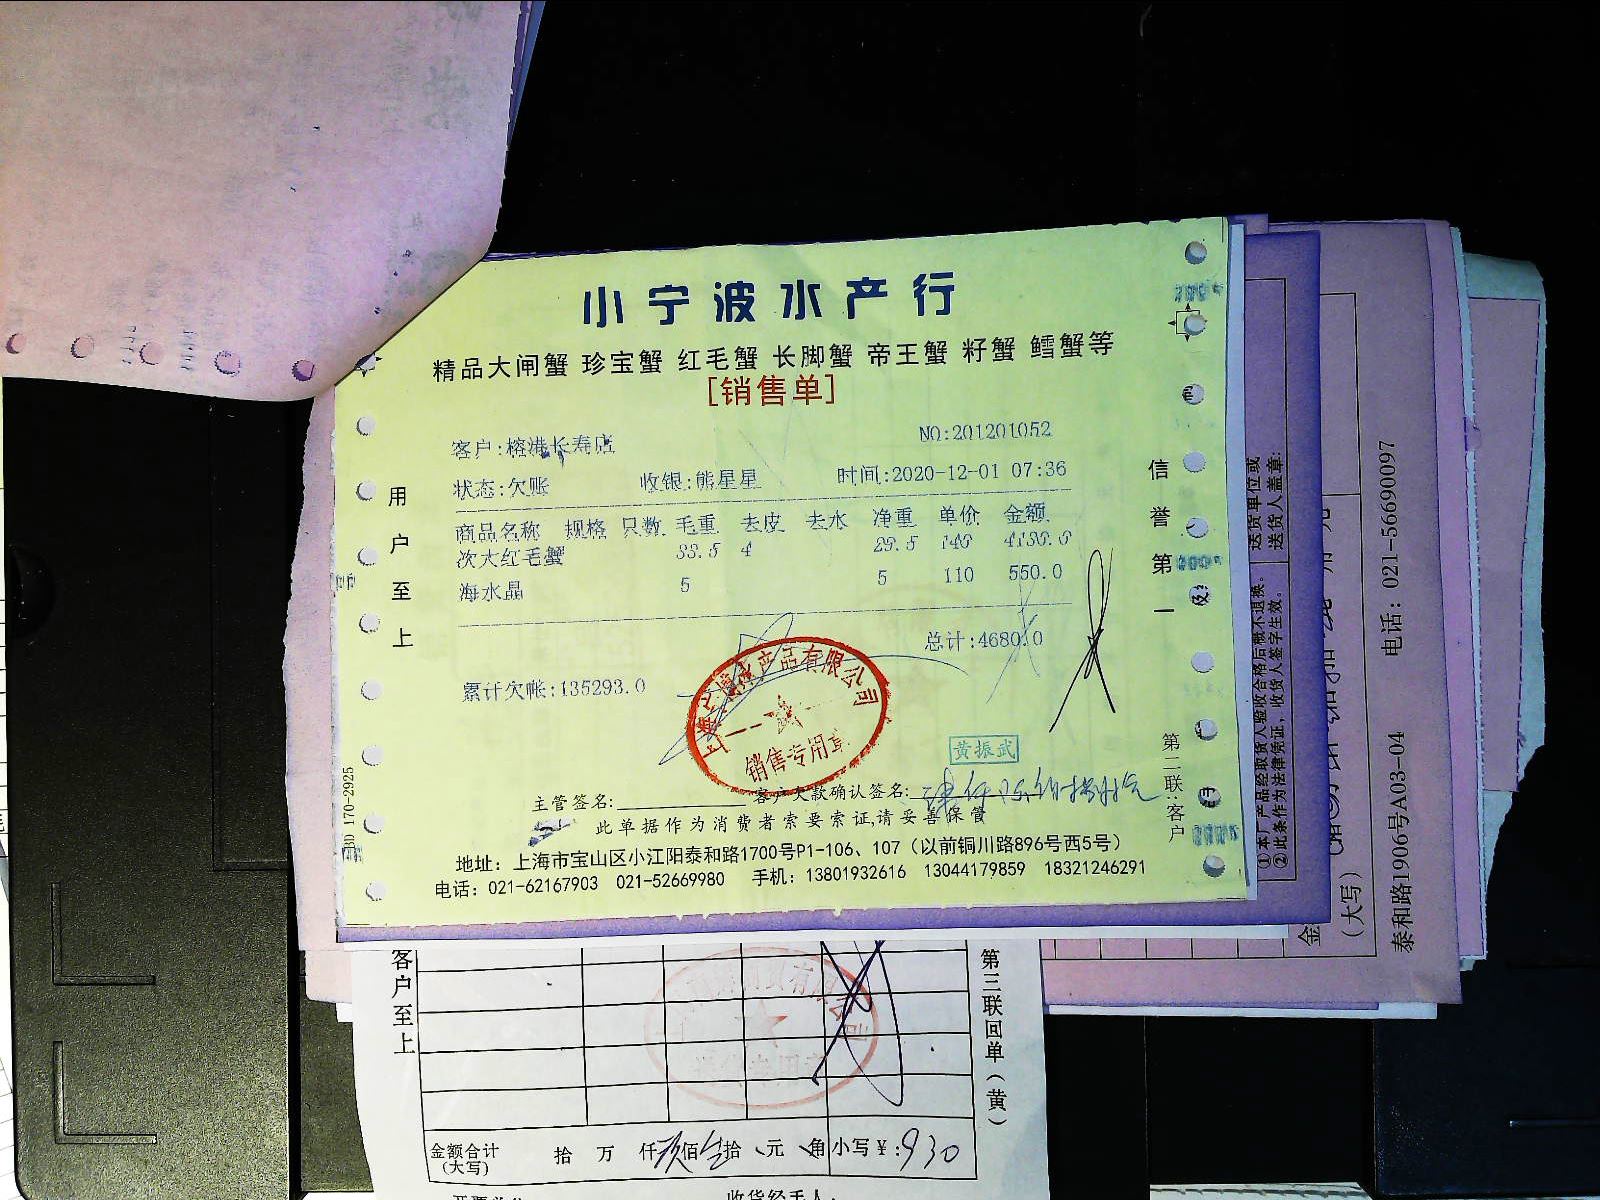 小宁波水产行
精品大闸蟹 珍宝蟹 红毛蟹 长脚蟹 帝王蟹 籽蟹 鳕蟹等
[销售单]
客户:榕港长寿店 NO:201201052
状态:欠账 收银:熊星星 时间:2020-12-01 07:36
商品名称 规格 只数 毛重 去皮 去水 净重 单价 金额
次大红毛蟹 33.5 4 29.5 140 4130.0
海水晶 5 5 110 550.0
总计:4680.0
累计欠帐:135293.0
用户至上
信誉第一
第二联:客户
销售专用章
黄振武
主管签名: 客户欠款确认签名:
此单据作为消费者索要索证,请妥善保管
地址: 上海市宝山区小江阳泰和路1700号P1-106、107 (以前铜川路896号西5号)
电话: 021-62167903 021-52669980 手机: 13801932616 13044179859 18321246291
170-2925
送货单位或
送货人盖章:
①本厂产品经取货人验收合格后概不退换。
②此条作为法律凭证，收货人签字生效。
(大写)
泰和路1906号A03-04 电话: 021-56690097
客户至上
第三联回单(黄)
金额合计
(大写) 拾 万 仟 玖 佰 拾 元 角 小写¥:930
收货经手人: